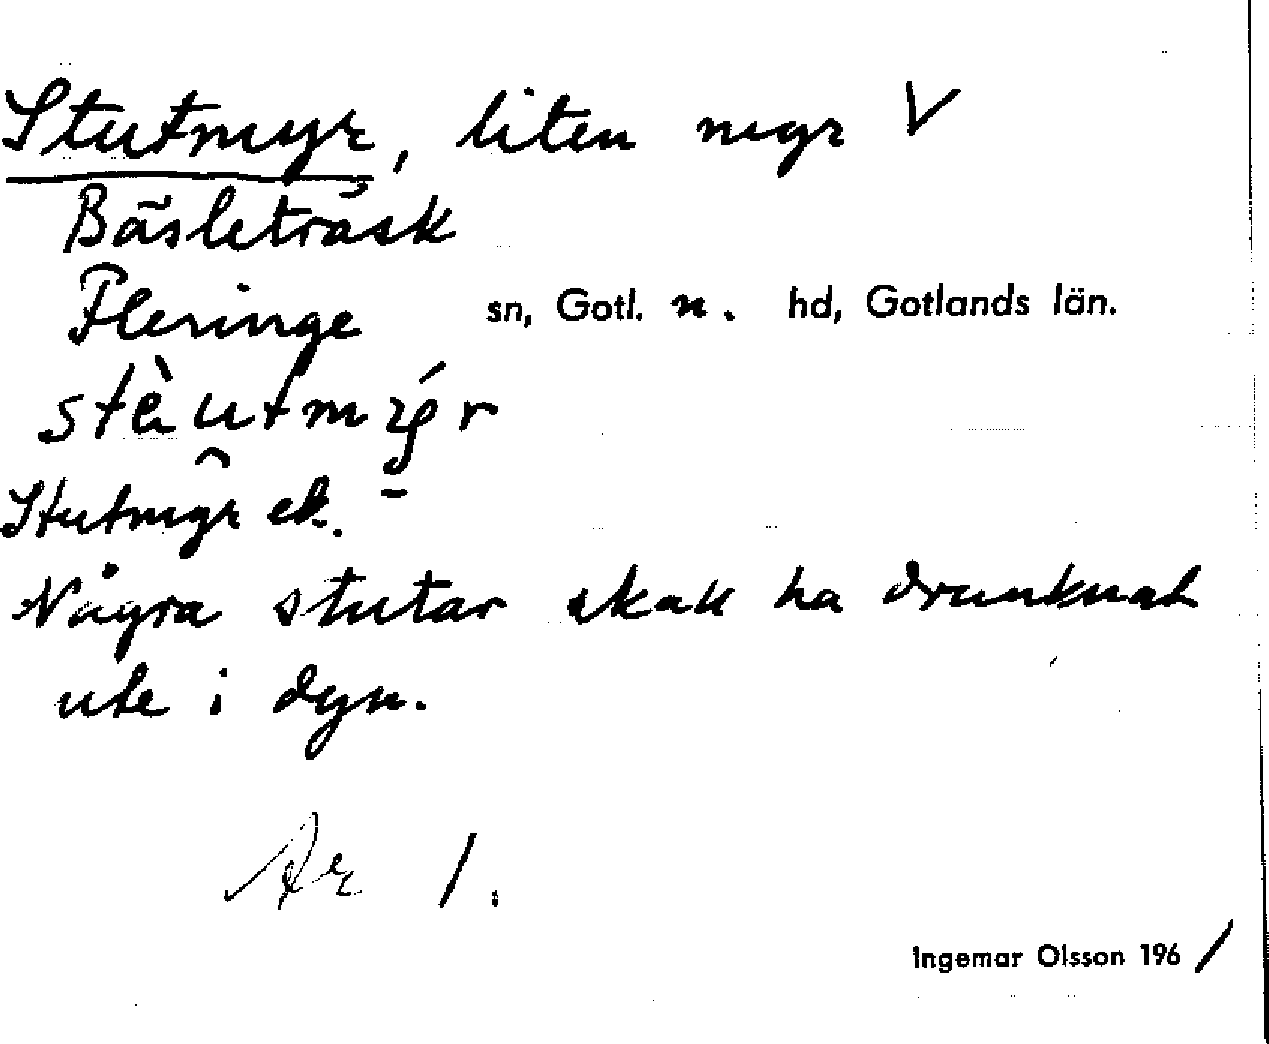 Stutmyr, liten myr V
Bästeträsk
Fleringe sn, Gotl. n. hd, Gotlands län.
stèutmýr
Stutmyr ek.
Några stutar skall ha drunknat
ute i dyn.
1.
Ingemar Olsson 1961